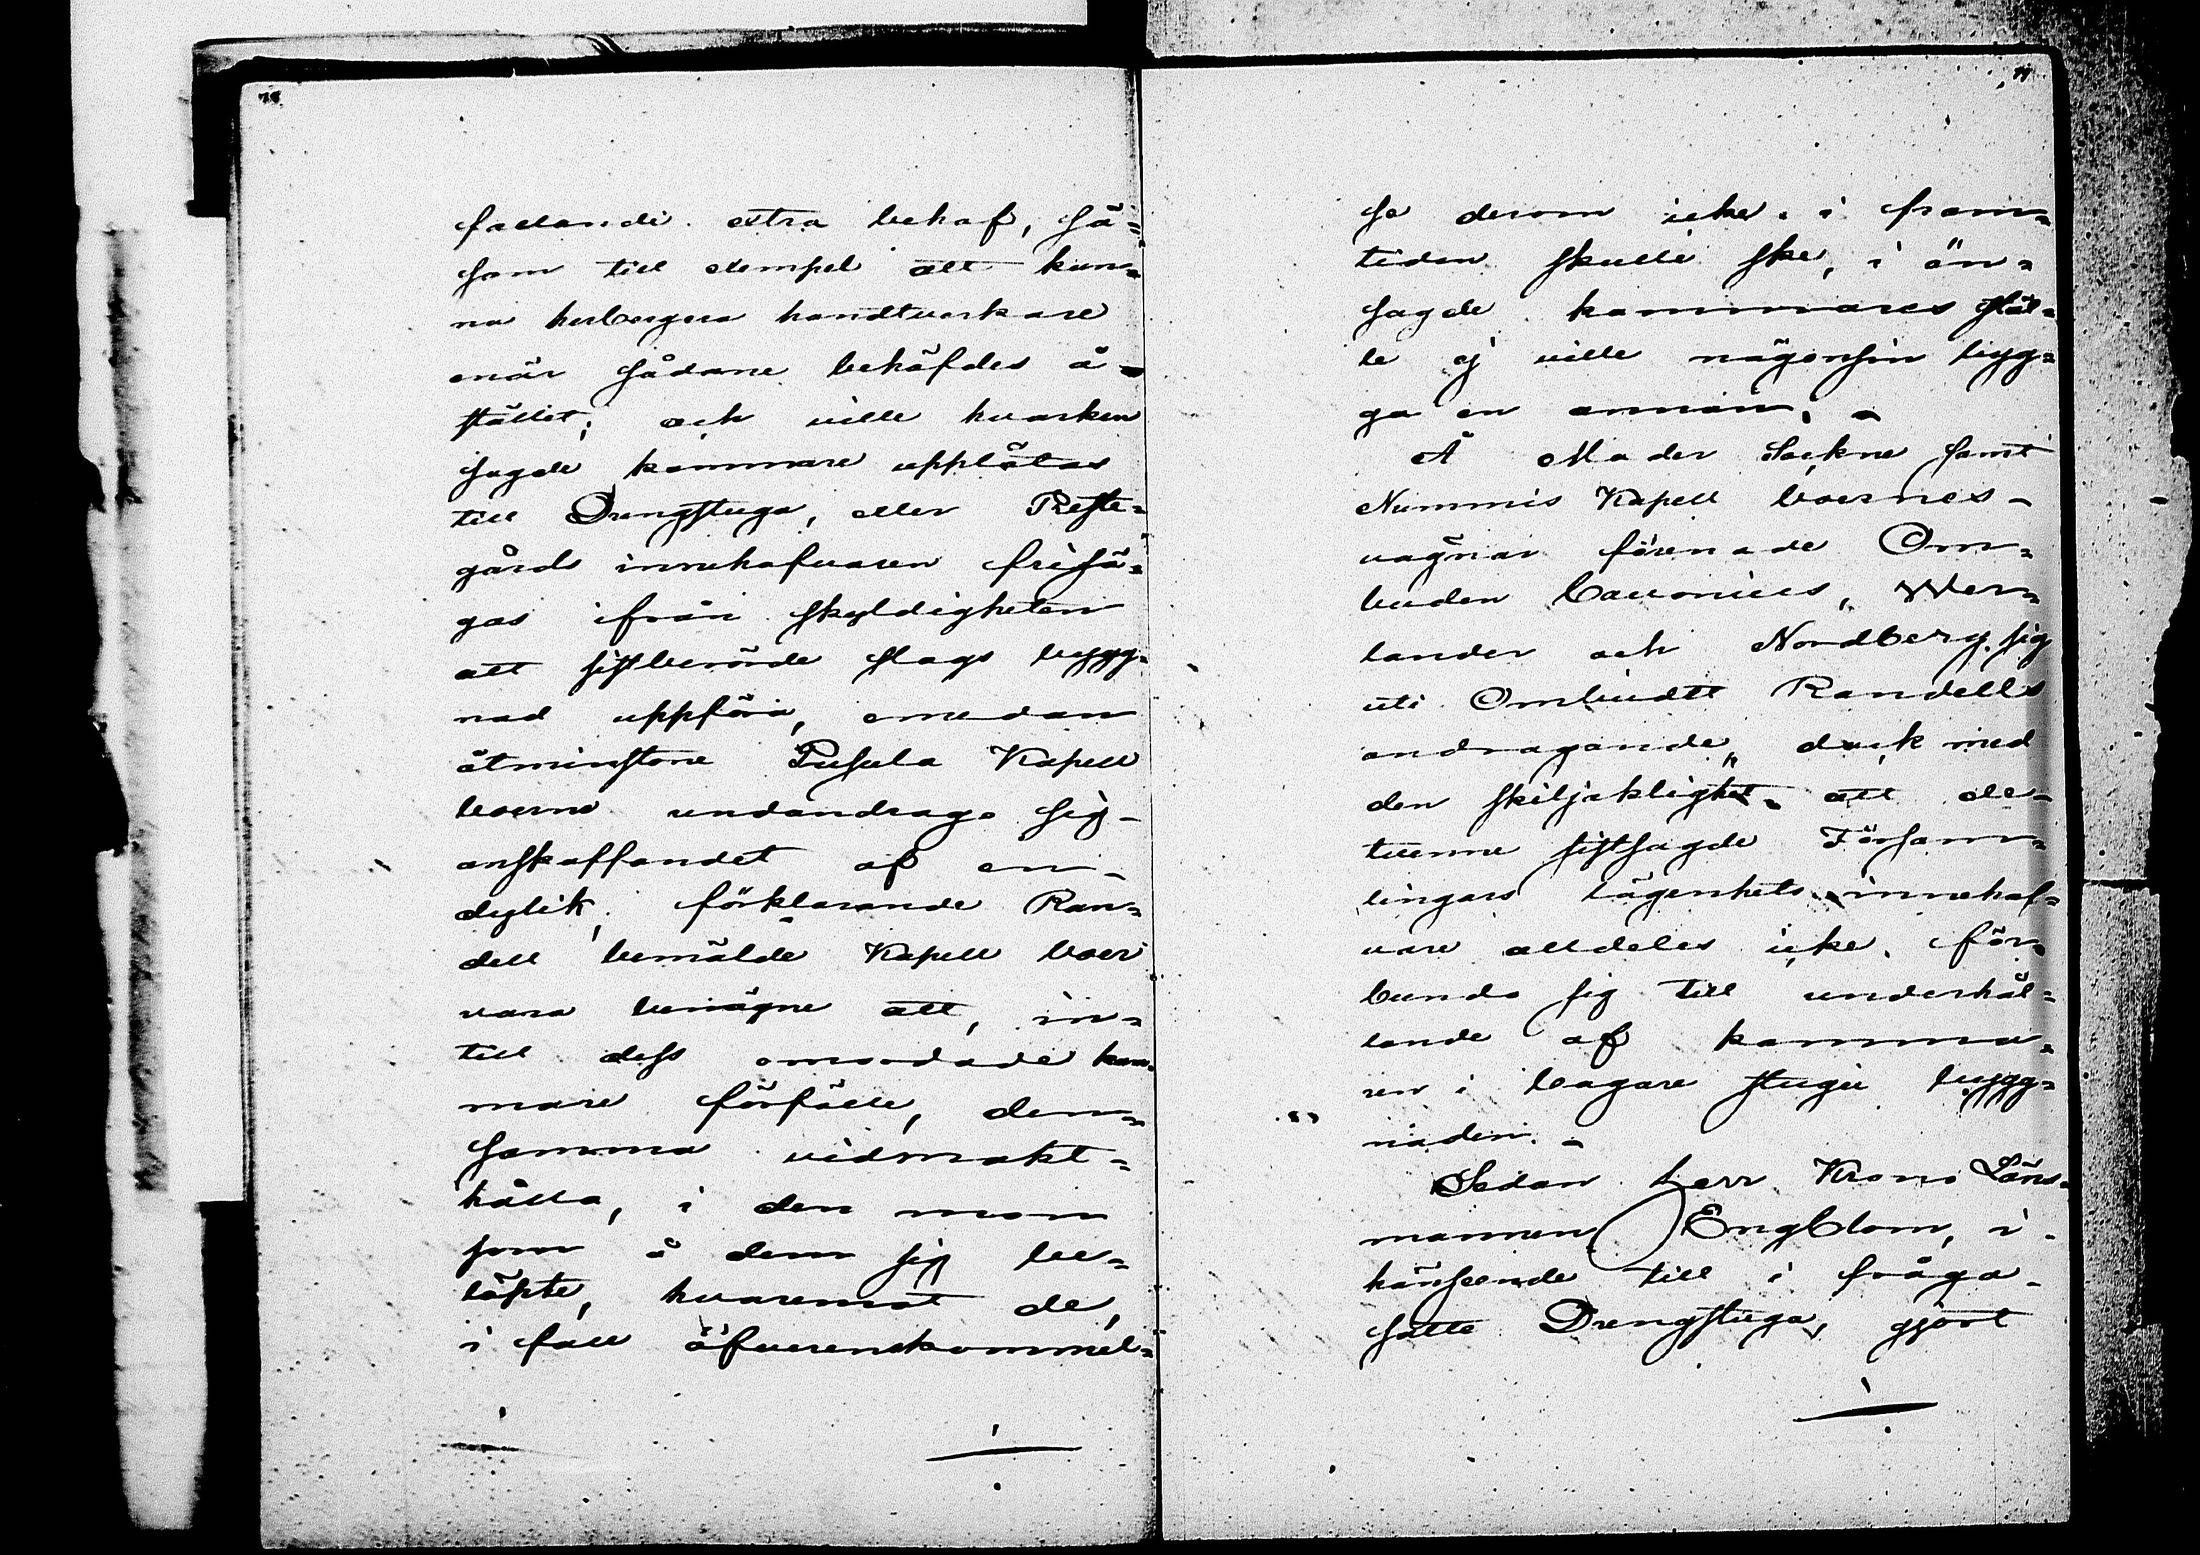 78
fallande extra behof, så=
som till exempel att kun=
na herbergera handtverkare
enär sådane behöfdes å
stället; och ville hvarken
sagde kammare upplåtas
till Drengstuga, eller Preste=
gårds innehafvaren frisä=
gas ifrån skyldigheten
att sistberörde slags bygg=
nad uppföra, emedan
åtminstone Pusula Kapell
boerne undandrogo sig
anskaffandet af en
dylik, förklarande Ran=
dell bemälde Kapell boer
vara benägne att, in=
till dess omordade kam=
mare förfölle, den=
samma vidmakt=
hålla, i den mon
som å dem sig be=
löpte, hvaremot de,
i fall öfverenskommel=
se derom icke i fram=
tiden skulle ske, i än=
sagde kammares stäl=
le ej ville någonsin byg=
ga en annan. -
Å Moder Sockne samt
Nummis Kapell boernes
vägnar förenade Om=
buden Cauonius, Wer=
lander och Nordberg sig
uti Ombudet Randells
andragande, dock med
den skiljaktighet, att de
tvenne sistsagde Försam=
lingars lägenhets innehaf=
vare alldeles icke för=
bundo sig till underhål=
lande af kamma=
ren i bagare stugu bygg=
naden. -
Sedan herr Krono Läns=
mannen Engblom, i
hänseende till i fråga
satte Drengstuga, gjort